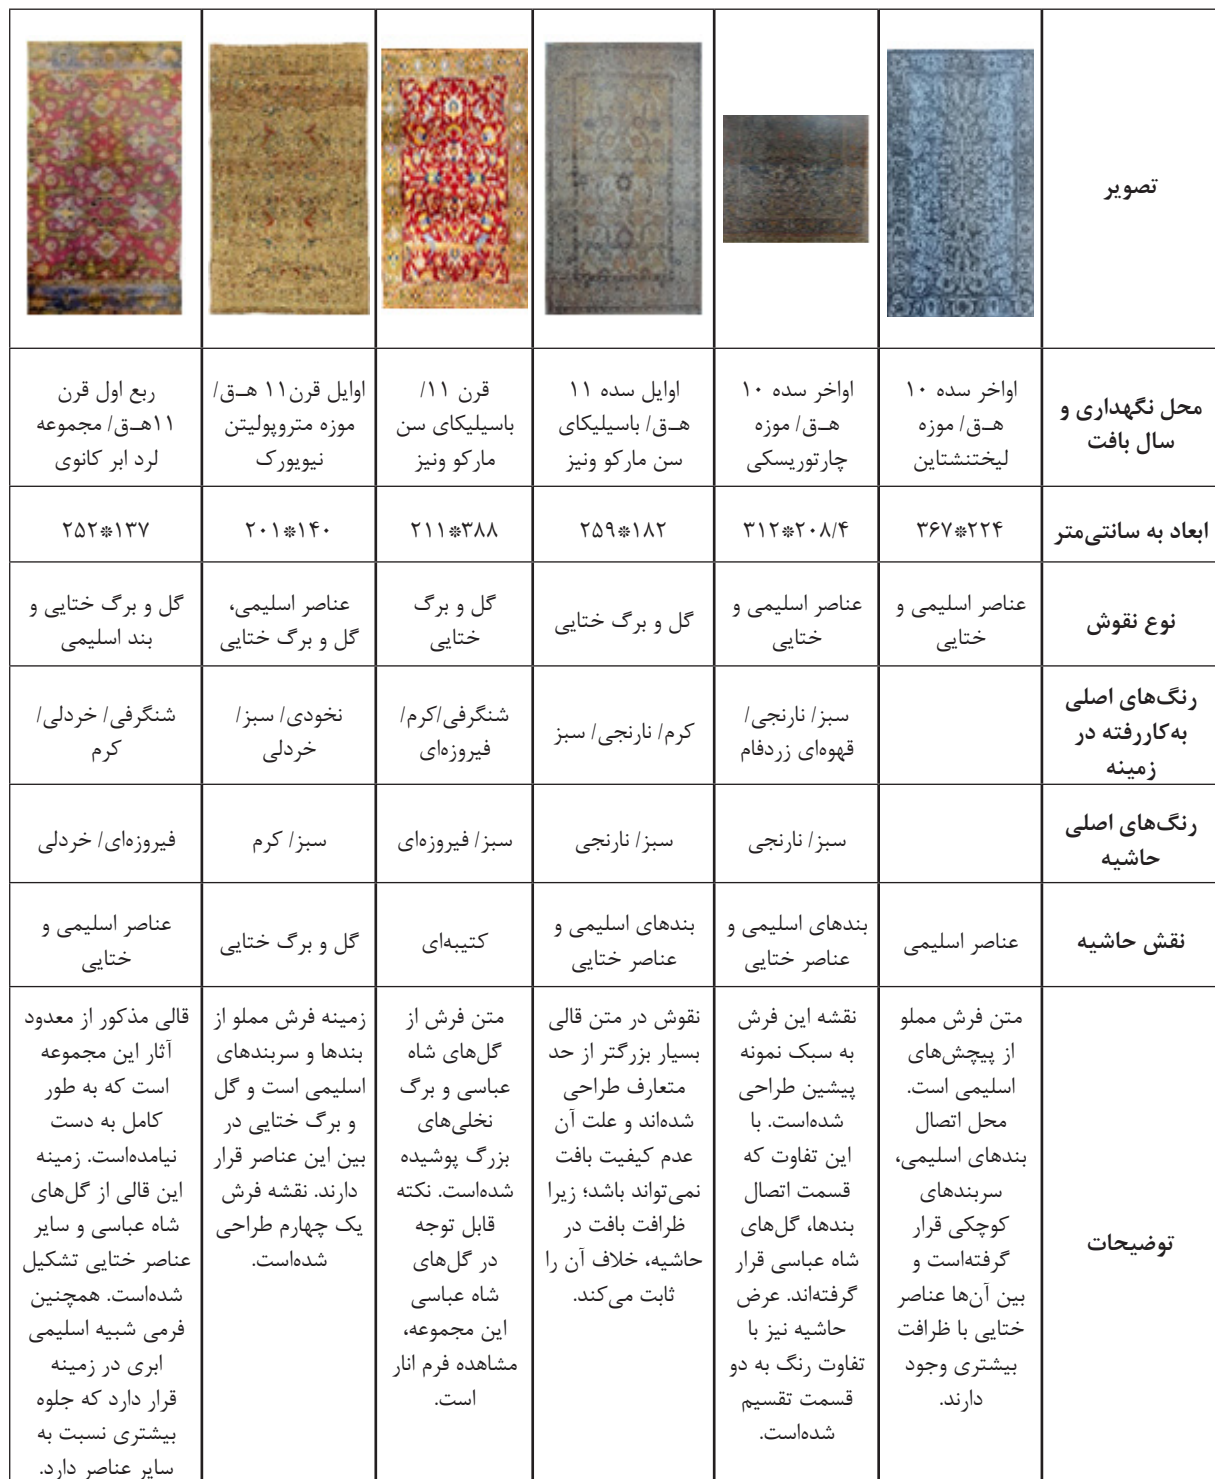 تصویر
محل نگهداری و
سال بافت
اواخر سده ۱۰
هــق/ موزه
لیختنشتاین
اواخر سده ۱۰
هــق/ موزه
چارتوریسکی
اوایل سده ۱۱
هــق/ باسیلیکای
سن مارکو ونیز
قرن ۱۱/
باسیلیکای سن
مارکو ونیز
اوایل قرن۱۱ هــق/
موزه متروپولیتن
نیویورک
ربع اول قرن
۱۱هــق/ مجموعه
لرد ابر کانوی
ابعاد به سانتی‌متر
۲۲۴*۳۶۷
۲۰۸/۴*۳۱۲
۱۸۲*۲۵۹
۳۸۸*۲۱۱
۱۴۰*۲۰۱
۱۳۷*۲۵۲
نوع نقوش
عناصر اسلیمی و
ختایی
عناصر اسلیمی و
ختایی
گل و برگ ختایی
گل و برگ
ختایی
عناصر اسلیمی،
گل و برگ ختایی
گل و برگ ختایی و
بند اسلیمی
رنگ‌های اصلی
به‌کاررفته در
زمینه
سبز/ نارنجی/
قهوه‌ای زردفام
کرم/ نارنجی/ سبز
شنگرفی/کرم/
فیروزه‌ای
نخودی/ سبز/
خردلی
شنگرفی/ خردلی/
کرم
رنگ‌های اصلی
حاشیه
سبز/ نارنجی
سبز/ نارنجی
سبز/ فیروزه‌ای
سبز/ کرم
فیروزه‌ای/ خردلی
نقش حاشیه
عناصر اسلیمی
بندهای اسلیمی و
عناصر ختایی
بندهای اسلیمی و
عناصر ختایی
کتیبه‌ای
گل و برگ ختایی
عناصر اسلیمی و
ختایی
توضیحات
متن فرش مملو
از پیچش‌های
اسلیمی است.
محل اتصال
بندهای اسلیمی،
سربندهای
کوچکی قرار
گرفته‌است و
بین آن‌ها عناصر
ختایی با ظرافت
بیشتری وجود
دارند.
نقشه این فرش
به سبک نمونه
پیشین طراحی
شده‌است. با
این تفاوت که
قسمت اتصال
بندها، گل‌های
شاه عباسی قرار
گرفته‌اند. عرض
حاشیه نیز با
تفاوت رنگ به دو
قسمت تقسیم
شده‌است.
نقوش در متن قالی
بسیار بزرگتر از حد
متعارف طراحی
شده‌اند و علت آن
عدم کیفیت بافت
نمی‌تواند باشد؛ زیرا
ظرافت بافت در
حاشیه، خلاف آن را
ثابت می‌کند.
متن فرش از
گل‌های شاه
عباسی و برگ
نخلی‌های
بزرگ پوشیده
شده‌است. نکته
قابل توجه
در گل‌های
شاه عباسی
این مجموعه،
مشاهده فرم انار
است.
زمینه فرش مملو از
بندها و سربندهای
اسلیمی است و گل
و برگ ختایی در
بین این عناصر قرار
دارند. نقشه فرش
یک چهارم طراحی
شده‌است.
قالی مذکور از معدود
آثار این مجموعه
است که به طور
کامل به دست
نیامده‌است. زمینه
این قالی از گل‌های
شاه عباسی و سایر
عناصر ختایی تشکیل
شده‌است. همچنین
فرمی شبیه اسلیمی
ابری در زمینه
قرار دارد که جلوه
بیشتری نسبت به
سایر عناصر دارد.